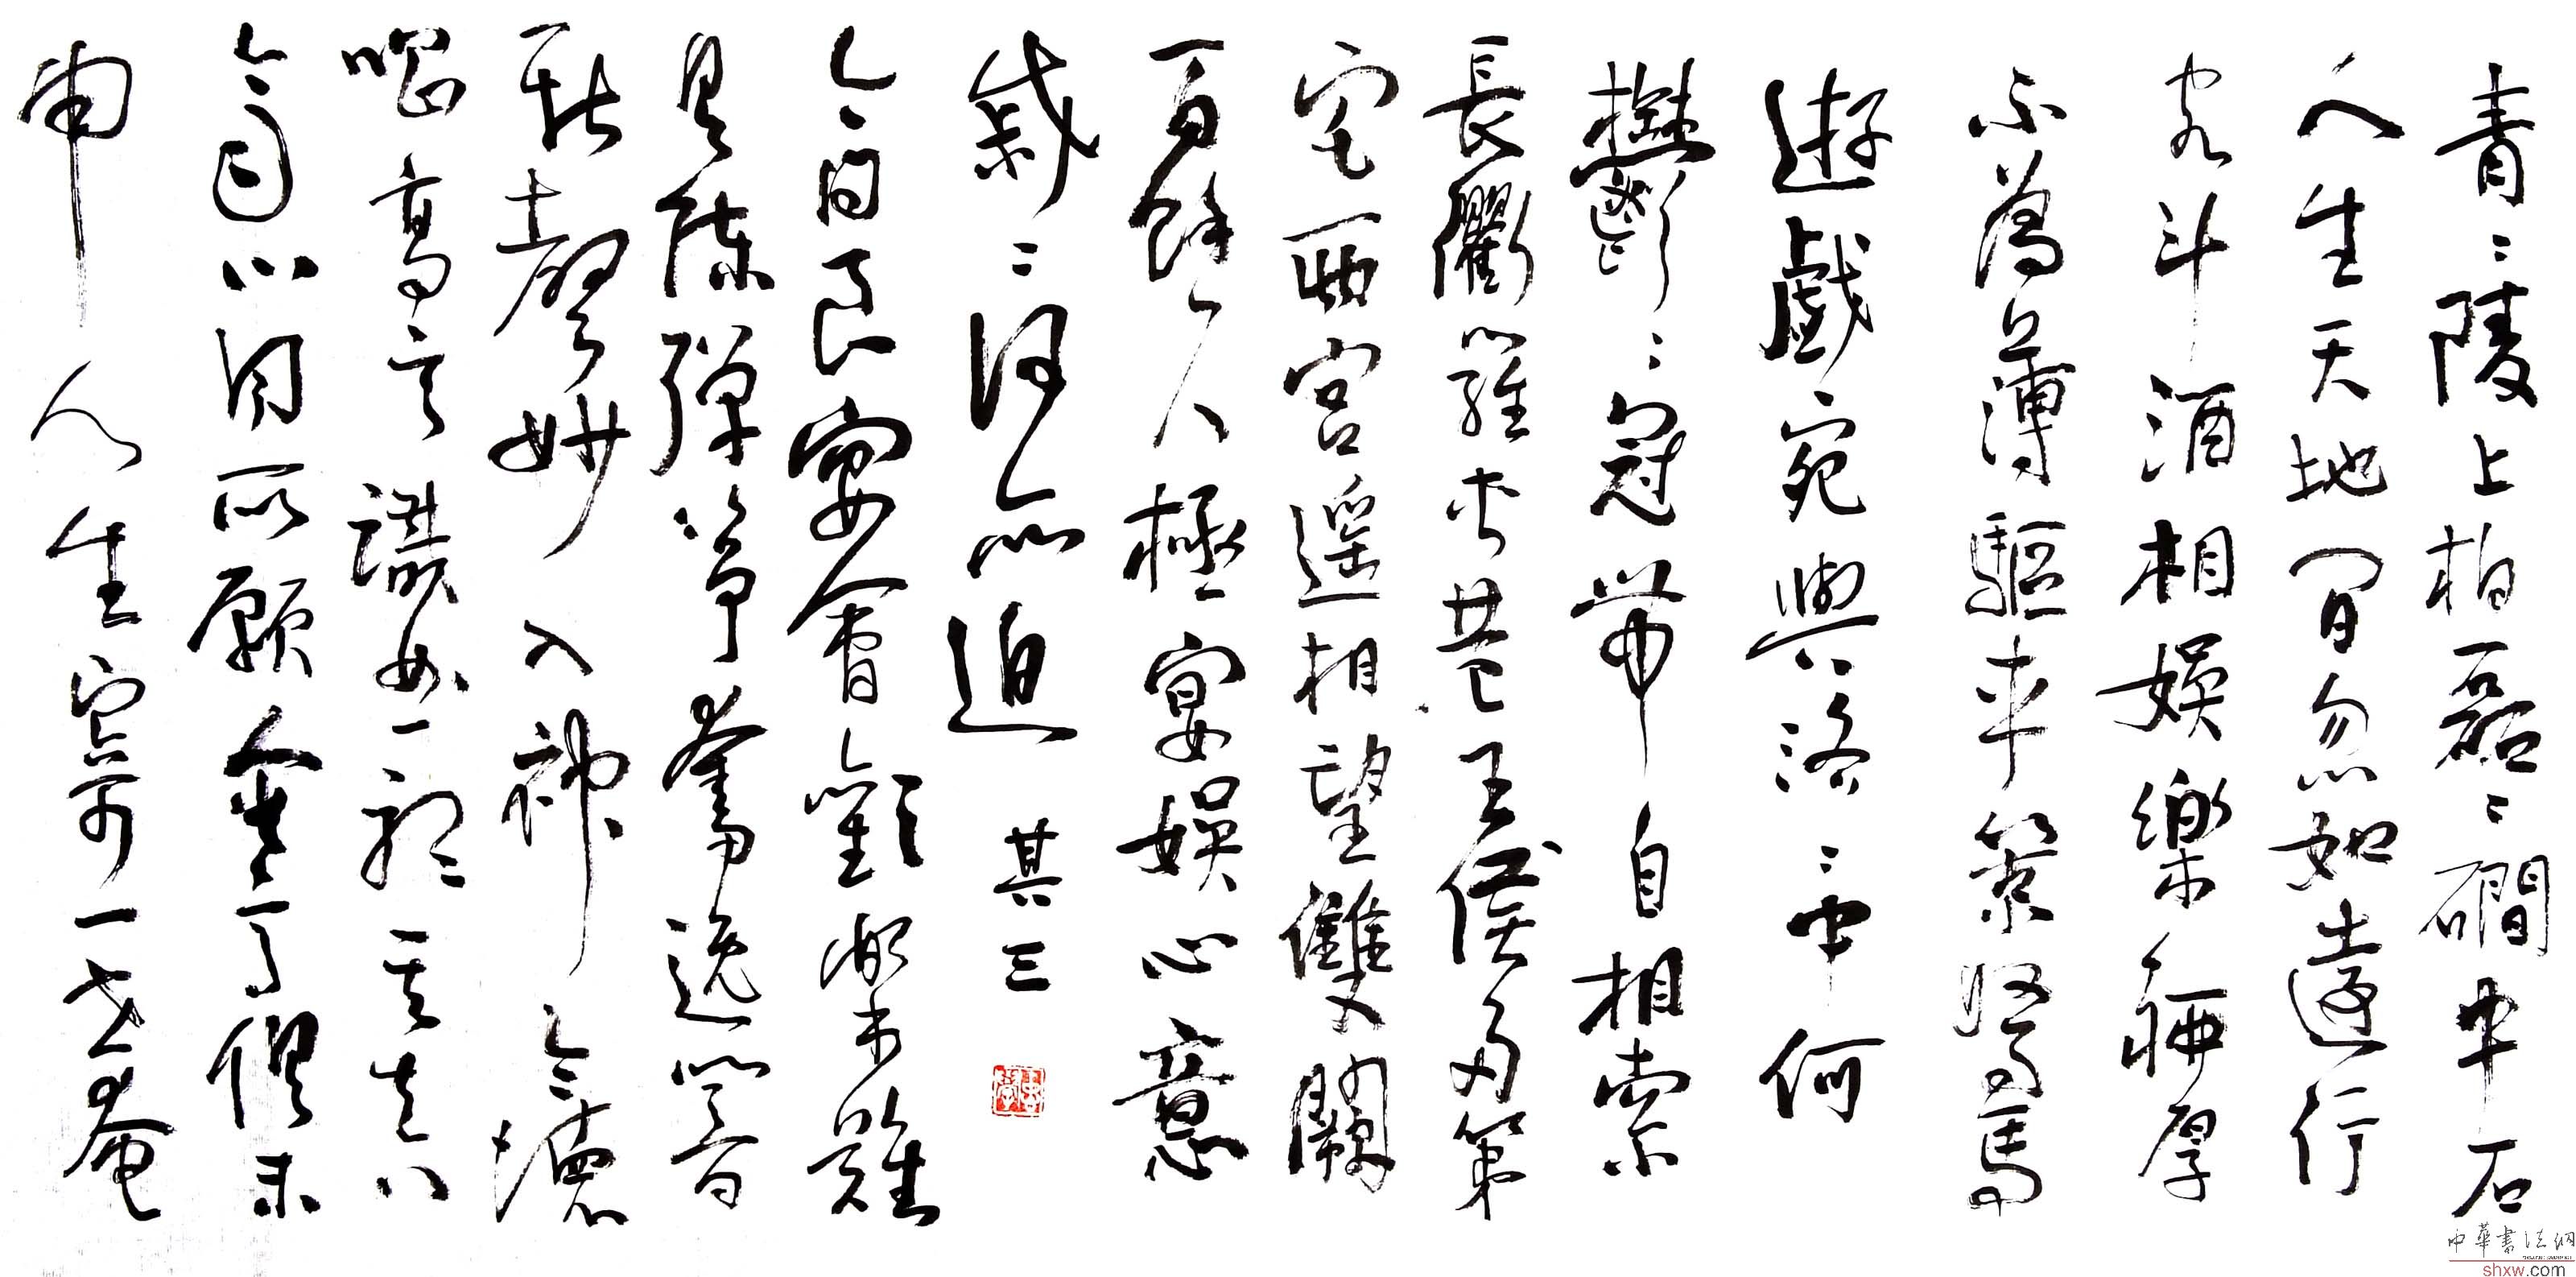 青〻陵上柏磊〻磵中石
人生天地間忽如遠行
客斗酒相娛樂聊厚
不為薄驅車策駑馬
遊戲宛與洛〻中何
鬱〻冠帶自相索
長衢羅夾巷王侯多第
宅兩宮遙相望雙闕
百餘尺極宴娛心意
戚〻何所迫 其三
今日良宴會歡樂難
具陳彈箏奮逸響
新聲妙入神令德
唱高言識曲聽其真
齊心同所願含意俱未
申人生寄一世奄
中華書法網
shxw.com